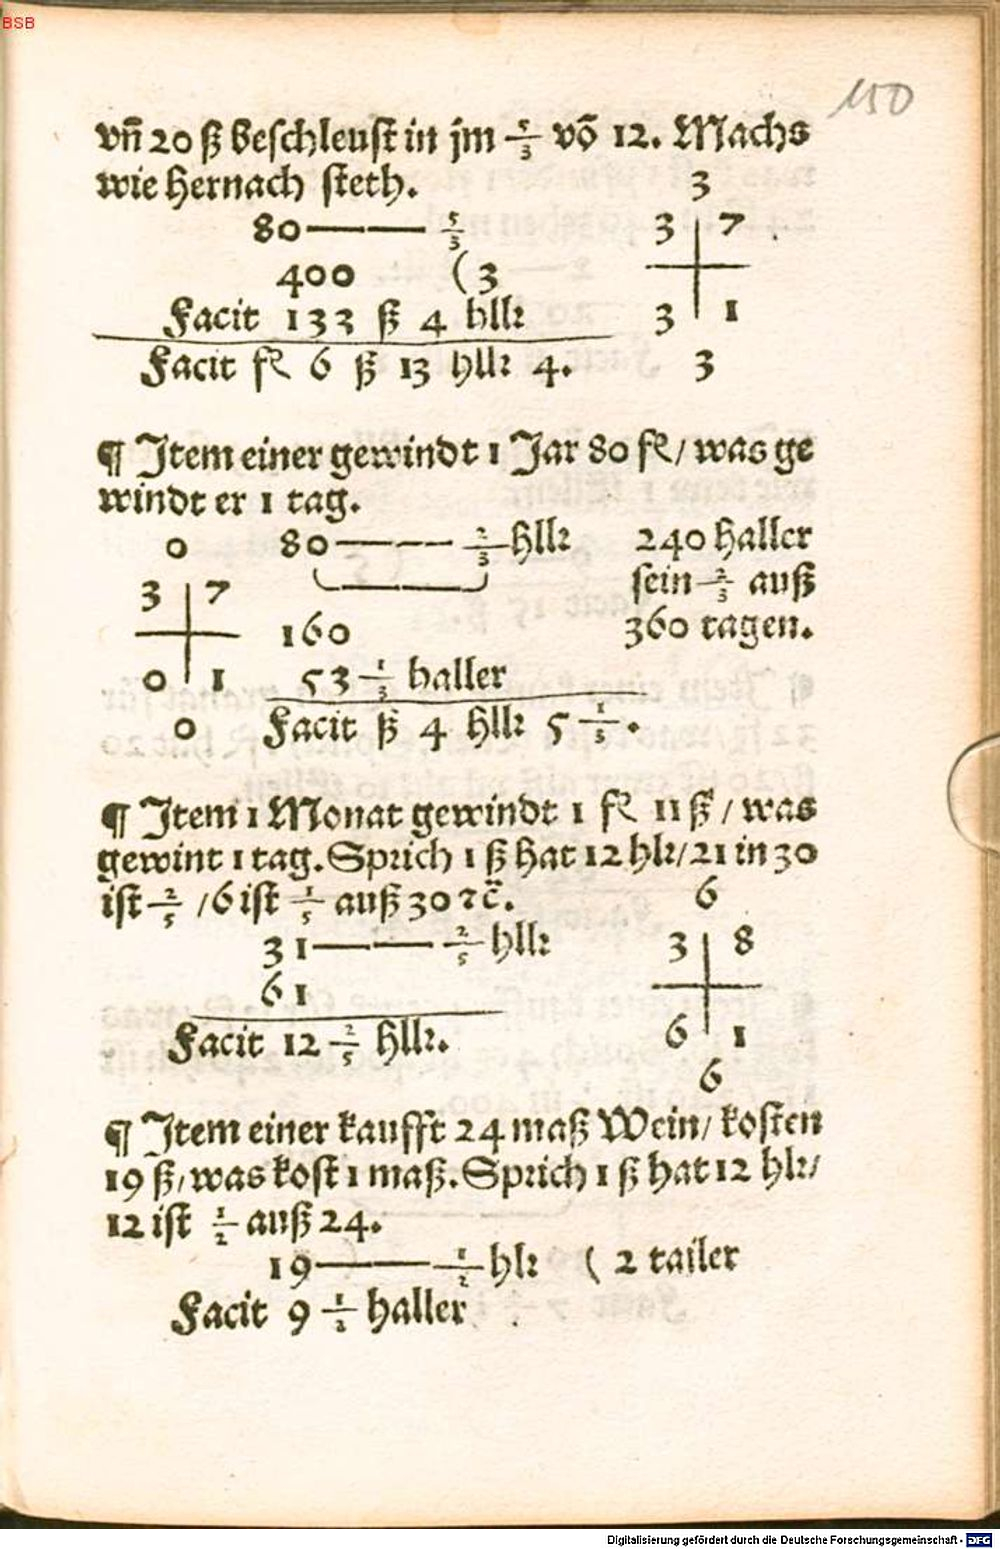 BSB
150
vn̄ 20 ß beſchleuſt in jm 5/3 vō 12. Machs
wie hernach ſteth. 3
80 —— 5/3 3 7
400 (3
Facit 133 ß 4 hllr 3 1
Facit fl 6 ß 13 hllr 4. 3
¶ Item einer gewindt 1 Jar 80 fl / was ge
windt er 1 tag.
0 80 —— 2/3 hllr 240 haller
3 7 ſein 2/3 auß
160 360 tagen.
0 1 53 1/3 haller
0 Facit ß 4 hllr 5 1/3.
¶ Item 1 Monat gewindt 1 fl 11 ß / was
gewint 1 tag. Sprich 1 ß hat 12 hlr / 21 in 30
iſt 2/5 / 6 iſt 1/5 auß 30 ⁊c̄. 6
31 —— 2/5 hllr 3 8
61
Facit 12 2/5 hllr. 6 1
6
¶ Item einer kaufft 24 maß Wein / koſten
19 ß / was koſt 1 maß. Sprich 1 ß hat 12 hlr /
12 iſt 1/2 auß 24.
19 —— 1/2 hlr ( 2 tailer
Facit 9 1/2 haller
Digitalisierung gefördert durch die Deutsche Forschungsgemeinschaft - DFG